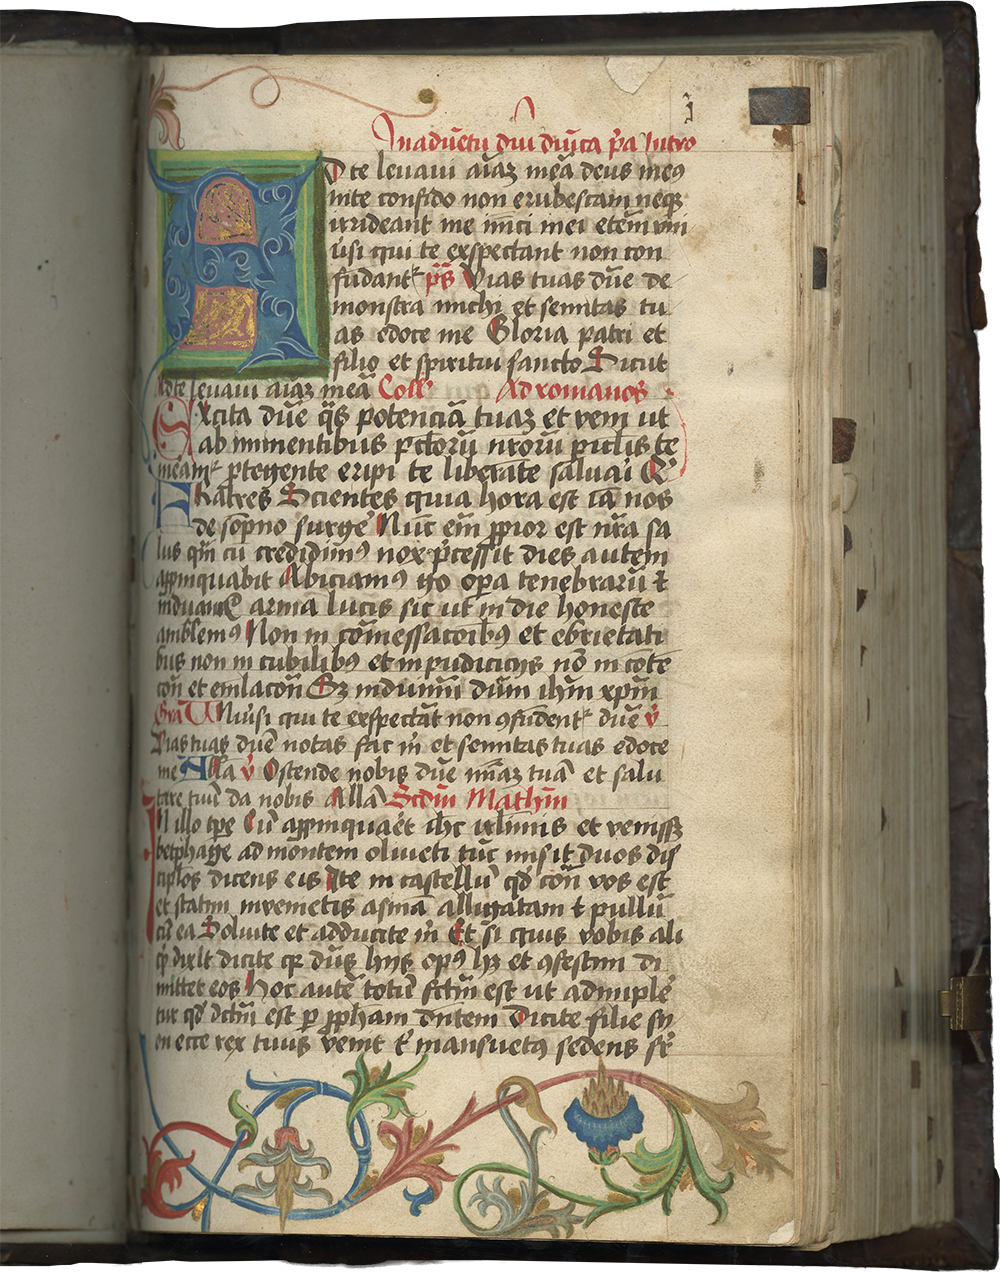 j
In aduētu dnī dnīca pͥa Intro
AD te leuaui aīaʒ meā deus meꝰ
inte confido non erubescam neqꝫ
irrideant me inīci mei etem vni
ūsi qui te exspectant non con
fūdantᷣ pͤs Vias tuas dnē de
monstra michi et semitas tu
as edoce me Gloria patri et
filio et spiritui sancto Sicut
Ad te leuaui aīaʒ meā Coll̄ Ad romanos
Excita dnē q̄s potenciā tuaʒ et veni ut
ab iminentibus pctorū nrorū piclis te
meamᷣ ꝓtegente eripi te liberāte saluai Q̄
FRatres Scientes quia hora est iā nos
de sopno surge Nūc em̄ ꝓpior est nrā sa
lus qm̄ cū credidimꝰ nox pͥcessit dies autem
appinquabit Abiciamꝰ gͦ opera tenebrarū ⁊
induamᷣ arma lucis sic ut in die honeste
ambulemꝰ Non in comessacoibꝰ et ebrietati
bus non in cubilibꝰ et inpudicicijs nō in cōte
con̄ et emlacon̄ Sʒ induimi dnm̄ ihm̄ xpm̄
Gra Vniūsi qui te exspectāt non ꝯfudentᷣ dnē v̉
Vias tuas dnē notas fac m̄ et semitas tuas edoce
me Alla v̉ Ostende nobis dnē miāʒ tuā et salu
tare tuū da nobis Alla Scdm̄ Mathm̄
IN illo tpe Cū appinquaēt ihc ierlimis et venissʒ
betphage ad montem oliueti tūc misit duos dis
ciplos dicens eis Ite in castellū qd̄ con̄ vos est
et statim inuenietis asinā alligatam ⁊ pullū
cū ea Soluite et adducite m̄ Et si quis vobis ali
qͥd dixͥt dicite qꝫ dn̄s hijs opꝰ hʒ et ꝯfestim di
mittet eos Hoc autē totū fctm̄ est ut adimple
tur qd̄ dctm̄ est per ꝓpham dn̄tem Dicite filie sy
on ecce rex tuus venit t̄ mansuetꝰ sedens sr̄